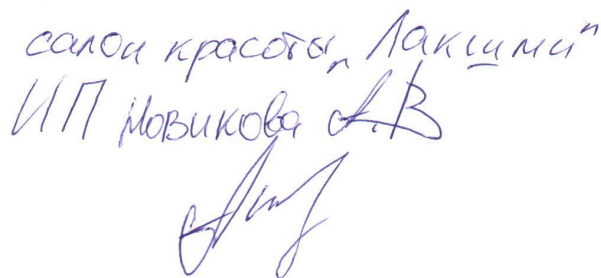 салон красоты „Лакшми"
ИП Новикова А.В